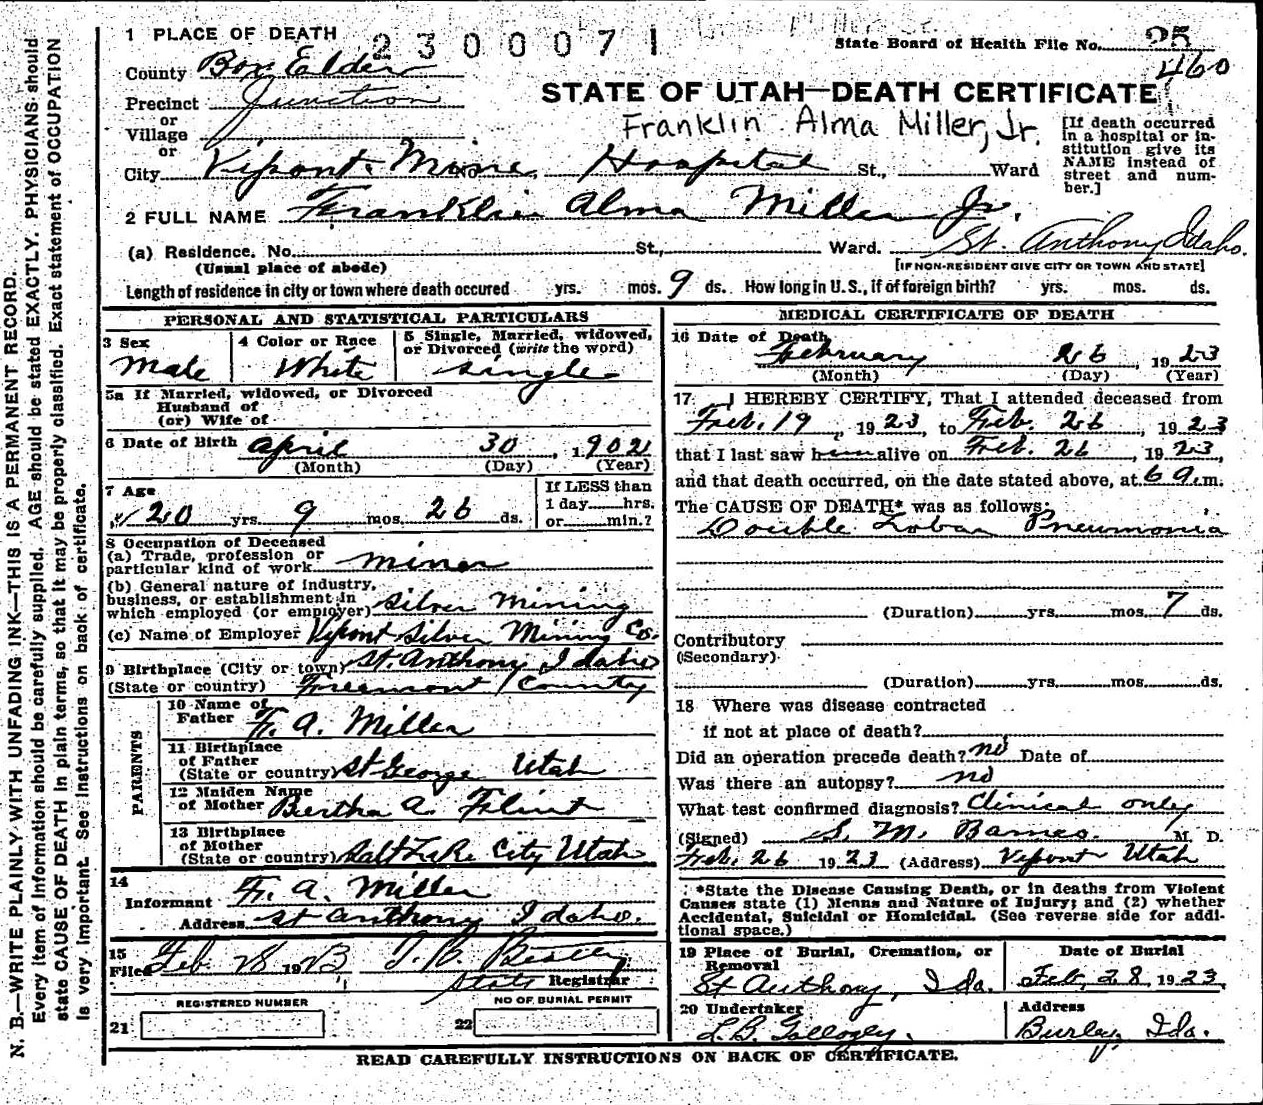 1 PLACE OF DEATH 2300071
State Board of Health File No. 25
460
County Box Elder
STATE OF UTAH—DEATH CERTIFICATE
Precinct Junction
or
Village
or
Franklin Alma Miller, Jr.
City Vipont Mine Hospital St., Ward
[If death occurred
in a hospital or in-
stitution give its
NAME instead of
street and num-
ber.]
2 FULL NAME Franklin Alma Miller Jr.
(a) Residence. No. St., Ward. St. Anthony Idaho.
(Usual place of abode) [IF NON-RESIDENT GIVE CITY OR TOWN AND STATE]
Length of residence in city or town where death occured yrs. mos. 9 ds. How long in U.S., if of foreign birth? yrs. mos. ds.
PERSONAL AND STATISTICAL PARTICULARS
3 Sex Male
4 Color or Race White
5 Single, Married, widowed,
or Divorced (write the word)
Single
5a If Married, widowed, or Divorced
Husband of
(or) Wife of
6 Date of Birth April 30, 1902
(Month) (Day) (Year)
7 Age
20 yrs. 9 mos. 26 ds.
If LESS than
1 day hrs.
or min.?
8 Occupation of Deceased
(a) Trade, profession or
particular kind of work miner
(b) General nature of industry,
business, or establishment in
which employed (or employer) Silver Mining
(c) Name of Employer Vipont Silver Mining Co.
9 Birthplace (City or town) St. Anthony Idaho
(State or country) Freemont County
PARENTS
10 Name of
Father F. A. Miller
11 Birthplace
of Father
(State or country) St George Utah
12 Maiden Name
of Mother Bertha A. Flint
13 Birthplace
of Mother
(State or country) Salt Lake City Utah
14
Informant F. A. Miller
Address St Anthony Idaho.
15
Filed Feb. 28 1923
State Registrar
REGISTERED NUMBER
21
NO OF BURIAL PERMIT
22
MEDICAL CERTIFICATE OF DEATH
16 Date of Death
February 26 1923
(Month) (Day) (Year)
17 I HEREBY CERTIFY, That I attended deceased from
Feb. 19, 1923, to Feb. 26, 1923
that I last saw him alive on Feb. 26, 1923,
and that death occurred, on the date stated above, at 6 a.m.
The CAUSE OF DEATH* was as follows:
Double Lobar Pneumonia
(Duration) yrs. mos. 7 ds.
Contributory
(Secondary)
(Duration) yrs. mos. ds.
18 Where was disease contracted
if not at place of death?
Did an operation precede death? no Date of
Was there an autopsy? no
What test confirmed diagnosis? Clinical only
(Signed) S. M. Barnes. M. D.
Feb. 26 1923 (Address) Vipont Utah
*State the Disease Causing Death, or in deaths from Violent
Causes state (1) Menns and Nature of Injury; and (2) whether
Accidental, Suicidal or Homicidal. (See reverse side for addi-
tional space.)
19 Place of Burial, Cremation, or
Removal
St Anthony, Ida.
Date of Burial
Feb. 28, 1923
20 Undertaker
L. B.
Address
Burley, Ida.
READ CAREFULLY INSTRUCTIONS ON BACK OF CERTIFICATE.
N. B.—WRITE PLAINLY WITH UNFADING INK—THIS IS A PERMANENT RECORD.
Every item of information should be carefully supplied. AGE should be stated EXACTLY. PHYSICIANS should
state CAUSE OF DEATH in plain terms, so that it may be properly classified. Exact statement of OCCUPATION
is very important. See instructions on back of certificate.